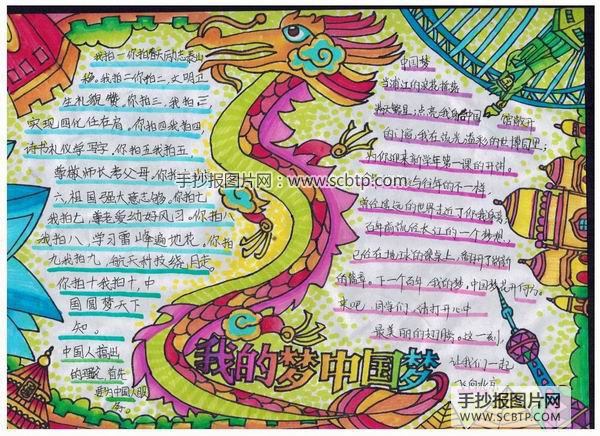 我拍一你拍
稳。我拍二你拍二,文明卫
生礼貌赞。你拍三,我拍三
实现四化任在肩。你拍四我拍四,
诗书礼仪学写字。你拍五我拍五,
尊敬师长孝父母。你拍
六,祖国强大意志够。你拍七
我拍七,尊老爱幼好风习。你拍八
我拍八,学习雷峰遍地花。你拍
九我拍九,航天科技绕月走。
你拍十我拍十,中
国圆梦天下
知。
中国人指出
的理论,首先
中国人服
务。
中国梦
当浦江的浪花
点亮我
的门窗,我在流光溢彩的世博园里;
为你迎来新学年第一课的开讲。
与往年的不一样,
曾经遥远的世界走近了你我身旁;
百年前依然长江的一个梦想;
已经在
的篇章。下一个百年,我的梦,中国梦
来吧,同学们,请打开心中
最美丽的翅膀。这一刻,
让我们一起
飞向北京
我的梦中国梦
手抄报图片网:www.scbtp.com
手抄报图片网
WWW.SCBTP.COM